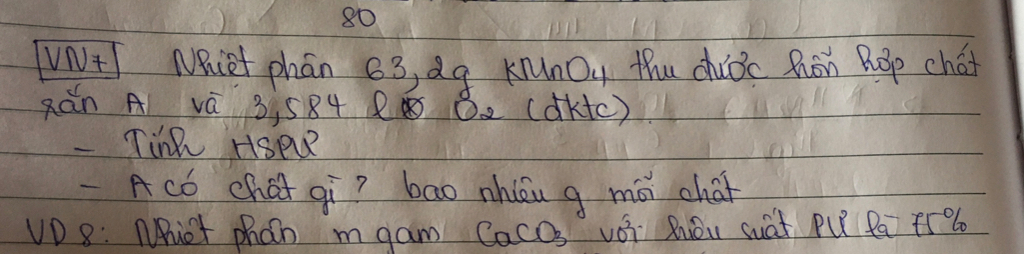 80
VN7 Nhiệt phân 63,2g KMnO4 thu được hỗn hợp chất
rắn A và 3,584 l O2 (đktc)
- Tính HSPƯ
- A có chất gì? bao nhiêu g mỗi chất
VD 8: Nhiệt phân m gam CaCO3 với hiệu suất PƯ là 75%